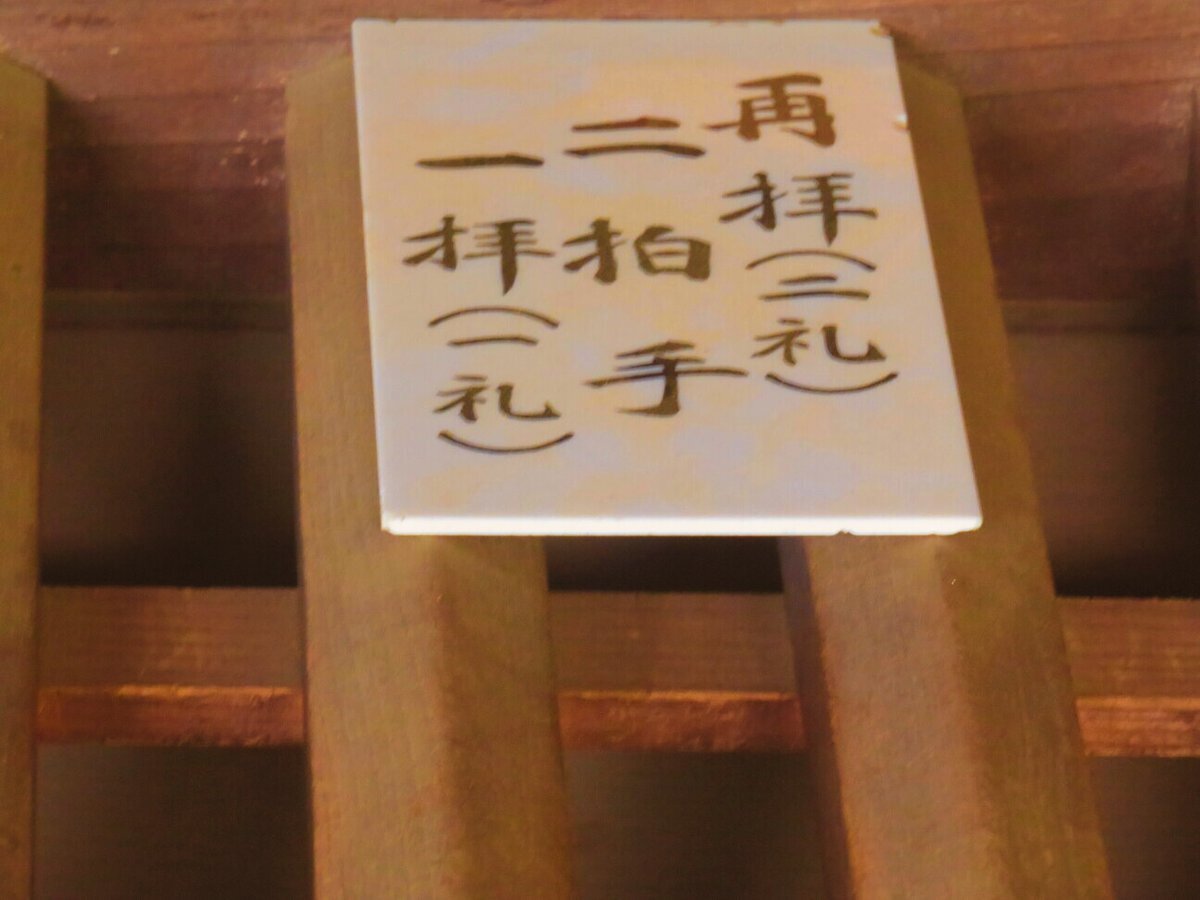 再拝(二礼)
二拍手
一拝(一礼)